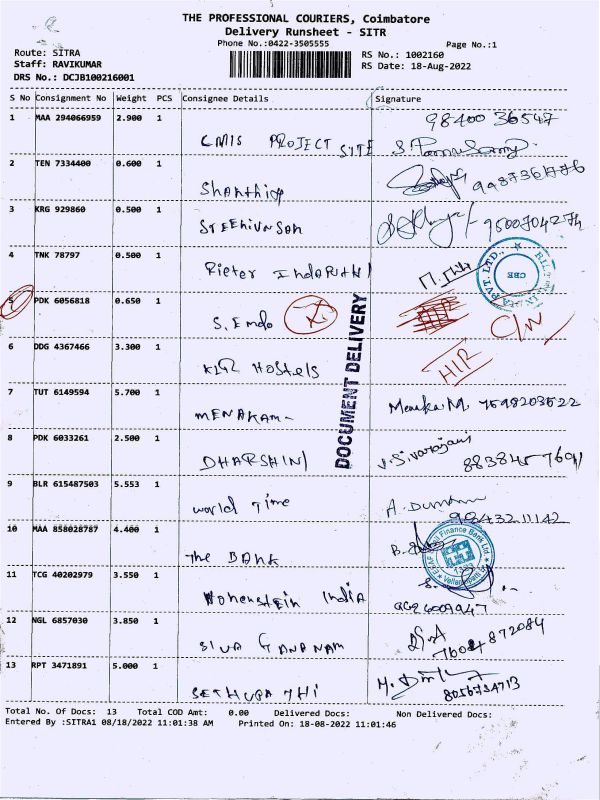 THE PROFESSIONAL COURIERS, Coimbatore
Delivery Runsheet - SITR
Phone No.:0422-3505555
Page No.:1
Route: SITRA
RS No.: 1002160
Staff: RAVIKUMAR
RS Date: 18-Aug-2022
DRS No.: DCJB100216001
S No Consignment No Weight PCS Consignee Details Signature
1 MAA 294066959 2.900 1
98400 36547
CMIS PROJECT SITE
2 TEN 7334400 0.600 1
Shanthiya
3 KRG 929860 0.500 1
9500704274
4 TNK 78797 0.500 1
Rieter
5 PDK 6056818 0.650 1
S. Emdo
C/N
6 DDG 4367466 3.300 1
HIR
KLR HOSTELS
DOCUMENT DELIVERY
7 TUT 6149594 5.700 1
Menaka.M. 7598203522
MENAKAM
8 PDK 6033261 2.500 1
DHARSHINI
V. Sivaranjani
8838457691
9 BLR 615487503 5.553 1
world Time
10 MAA 858028787 4.400 1
The BANK
11 TCG 40202979 3.550 1
Hohenstein India
12 NGL 6857030 3.850 1
SIVA GANANAM
7604872084
13 RPT 3471891 5.000 1
8056734713
SETHUPATHI
Total No. Of Docs: 13 Total COD Amt: 0.00 Delivered Docs: Non Delivered Docs:
Entered By :SITRA1 08/18/2022 11:01:38 AM Printed On: 18-08-2022 11:01:46